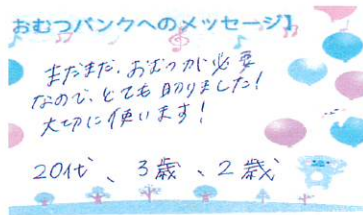 おむつバンクへのメッセージ】
まだまだ、おむつが必要
なので、とても助りました!
大切に使います!
20代、3歳、2歳